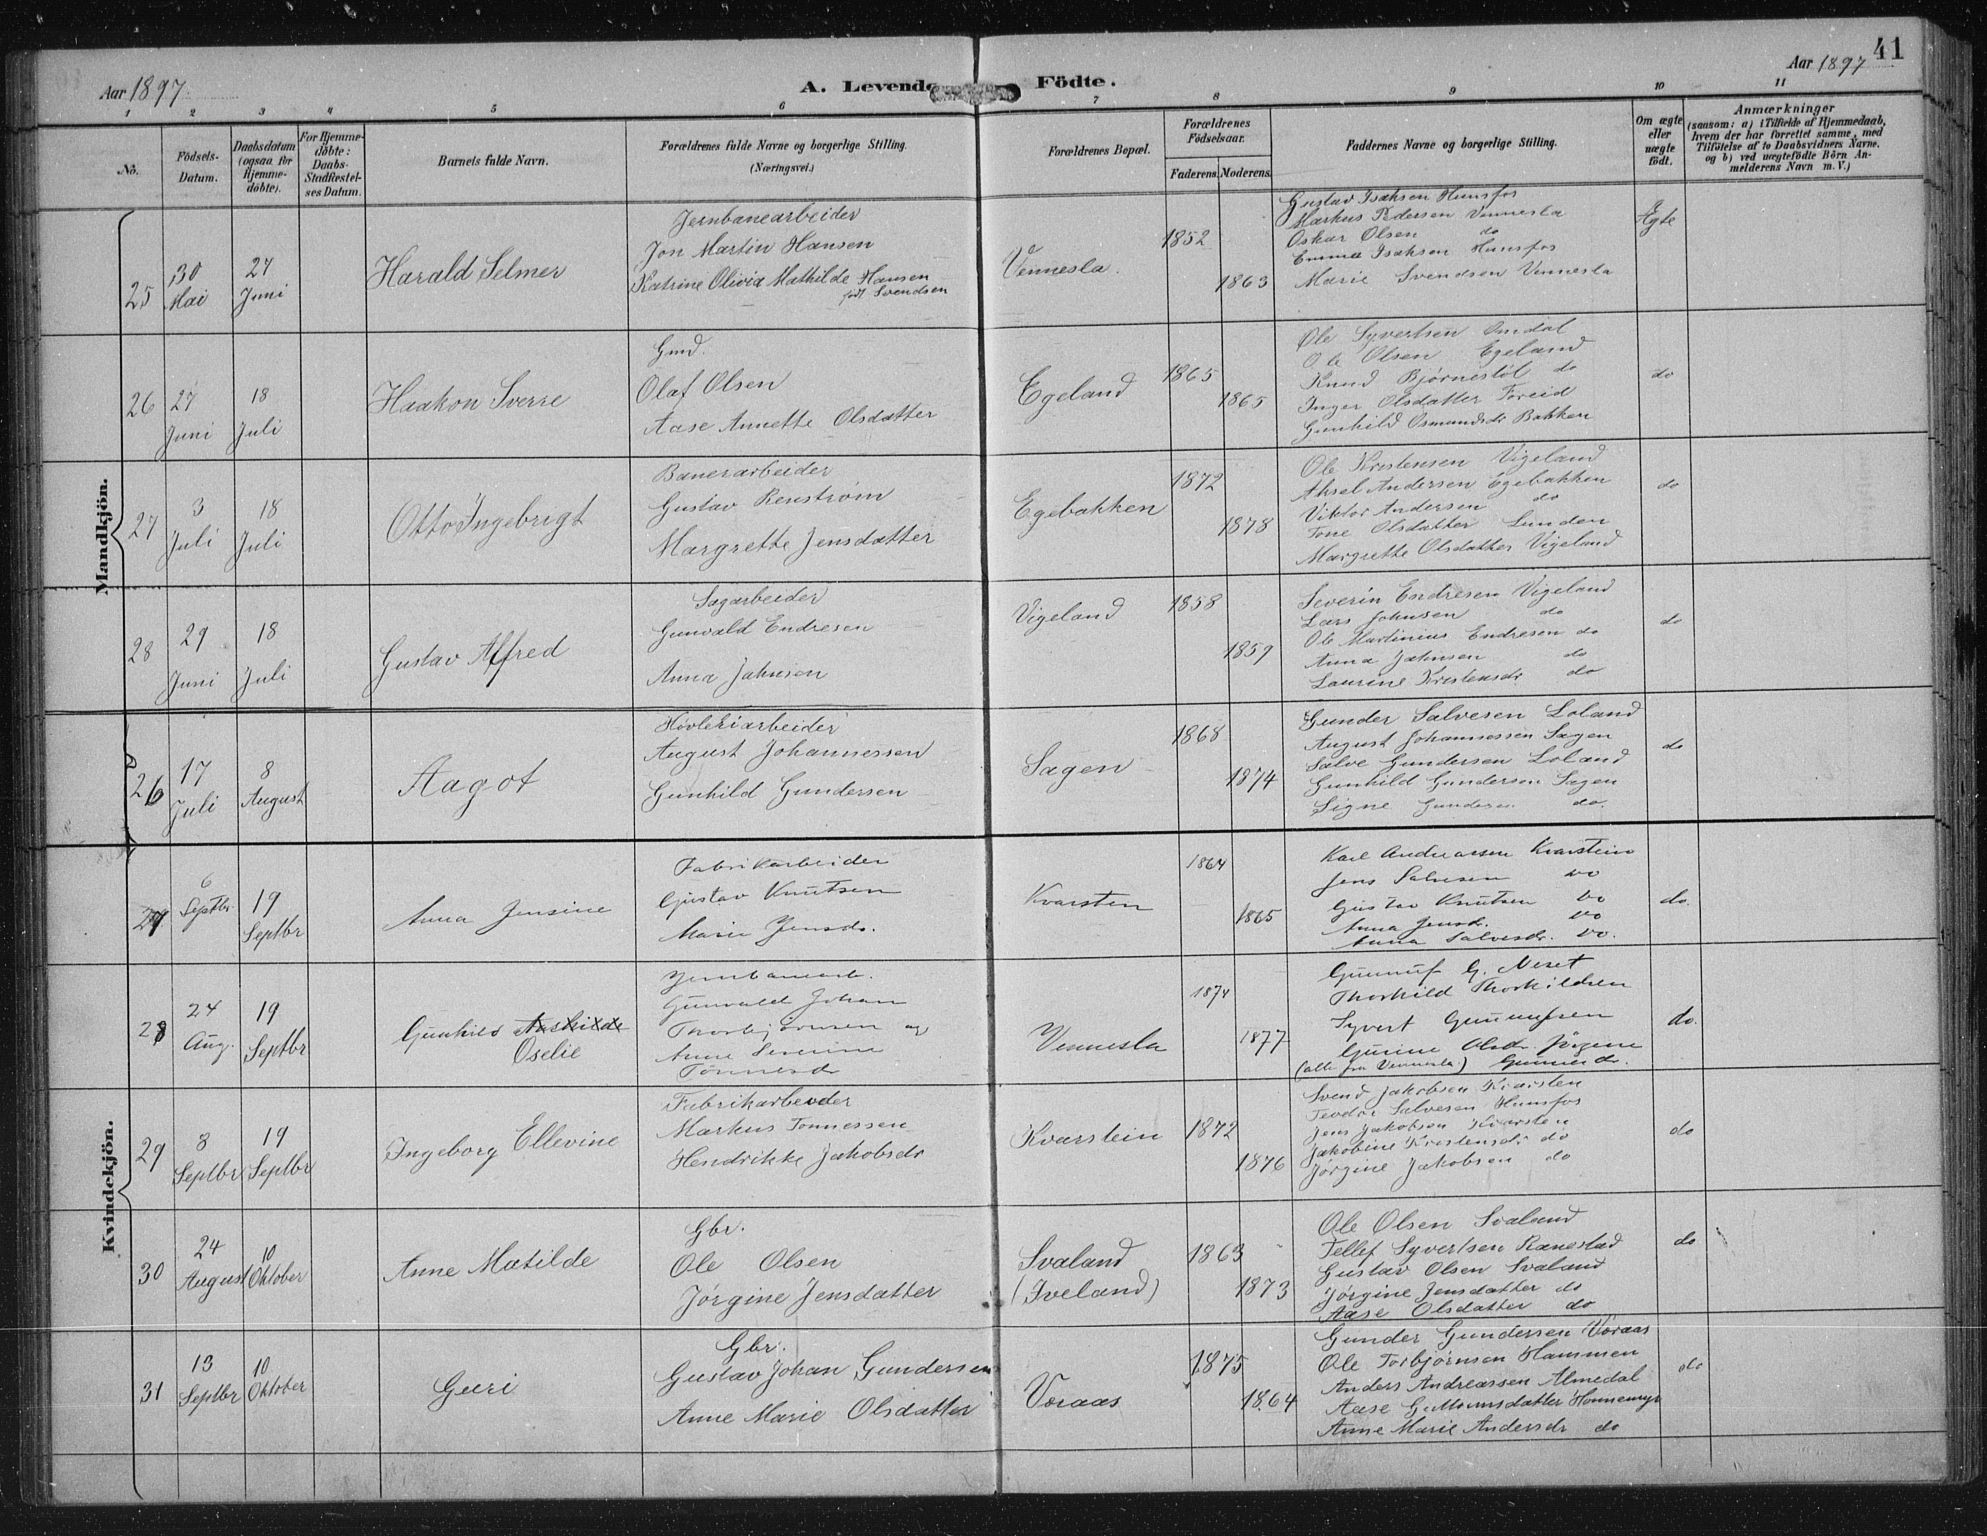 41
Aar 1897.
A. Levende Födte.
Aar 1897
1 2 3 4 5 6 7 8 9 10 11
No.
Födsels-Datum.
Daabsdatum (ogsaa for Hjemme-döbte).
For Hjemme-döbte: Daabs-Stadfæstel-ses Datum.
Barnets fulde Navn.
Forældrenes fulde Navne og borgerlige Stilling.
(Næringsvei.)
Forældrenes Bopæl.
Forældrenes Födselsaar.
Faderens. Moderens.
Faddernes Navne og borgerlige Stilling.
Om ægte eller uægte födt.
Anmærkninger
(saasom: a) i Tilfælde af Hjemmedaab, hvem der har forrettet samme, med Tilföielse af to Daabsvidners Navne. og b) ved uægtefödte Börn An-melderens Navn m. V.)
Mandkjön.
25
30 Mai
27 Juni
Harald Selmer
Jernbanearbeider
Jon Martin Hansen
Katrine Olivia Mathilde Hansen
født Svendsen
Vennesla.
1852
1863
Gustav Isaksen Hunsfos
Markus Pedersen Vennesla
Oskar Olsen do
Emma Isaksen Hunsfos
Marie Svendsen Vennesla
Ægte
26
27 Juni
18 Juli
Haakon Sverre
Gmd.
Olaf Olsen
Aase Annette Olsdatter
Egeland
1865
1865
Ole Syvertsen Omdal
Ole Olsen Egeland
Knud Bjørnestøl do
Inger Olsdatter Foreid
Gunhild Osmundsdr Bakken
do
27
3 Juli
18 Juli
Otto Ingebrigt
Banearbeider
Gustav Renstrøm
Margrette Jensdatter
Egebakken
1872
1878
Ole Kristensen Vigeland
Aksel Andersen Egebakken
Viktor Andersen do
Tone Olsdatter Lunden
Margrette Olsdatter Vigeland
do
28
29 Juni
18 Juli
Gustav Alfred
Sagarbeider
Gunvald Endresen
Anna Jahnsen
Vigeland
1858
1859
Severin Endresen Vigeland
Lars Johnsen do
Ole Martinius Endresen do
Anna Jahnsen do
Laurine Kristensdr do
do
26
17 Juli
8 August
Aagot
Høvleriarbeider
August Johannessen
Gunhild Gundersen
Sagen
1868
1874
Gunder Salvesen Loland
August Johannessen Sagen
Salve Gundersen Loland
Gunhild Gundersen Sagen
Signe Gundersen do.
do
27
6 Septbr
19 Septbr
Anna Jensine
Fabrikarbeider
Gustav Knutsen
Marie Jensdr.
Kvarsten
1864
1865
Karl Andreassen Kvarstein
Jens Salvesen do
Gustav Knutsen do
Anna Jensdr. do
Anna Salvesdr. do.
do.
Kvindekjön.
28
24 Aug.
19 Septbr
Gunhild Aashilde
Oselie
Jernbanearb.
Gunvald Johan
Thorbjørnsen og
Anne Severine
Tønnesdr
Vennesla
1874
1877
Gunnuf G. Neset
Thorkild Thorkildsen
Syvert Gunnufsen
Gurine Olsdr. Jørgine
(alle fra Vennesla) Gunnufsdr.
do.
29
8 Septbr
19 Septbr
Ingeborg Ellevine
Fabrikarbeider
Markus Tønnessen
Hendrikke Jakobsdr
Kvarstein
1872
1876
Svend Jakobsen Kvarsten
Teodor Salvesen Hunsfos
Jens Jakobsen Kvarsten
Jakobine Kristensdr do
Jørgine Jakobsen do
do
30
24 August
10 Oktober
Anne Matilde
Gbr.
Ole Olsen
Jørgine Jensdatter
Svaland
(Iveland)
1863
1873
Ole Olsen Svaland
Tellef Syvertsen Ranestad
Gustav Olsen Svaland
Jørgine Jensdatter do
Aase Olsdatter do
do
31
13 Septbr
10 Oktober
Guri
Gbr.
Gustav Johan Gundersen
Anne Marie Olsdatter
Voraas
1875
1864
Gunder Gundersen Voraas
Ole Torbjørnsen Hammen
Anders Andreassen Almedal
Aase Honnemyr
Anne Marie Andersdr do
do